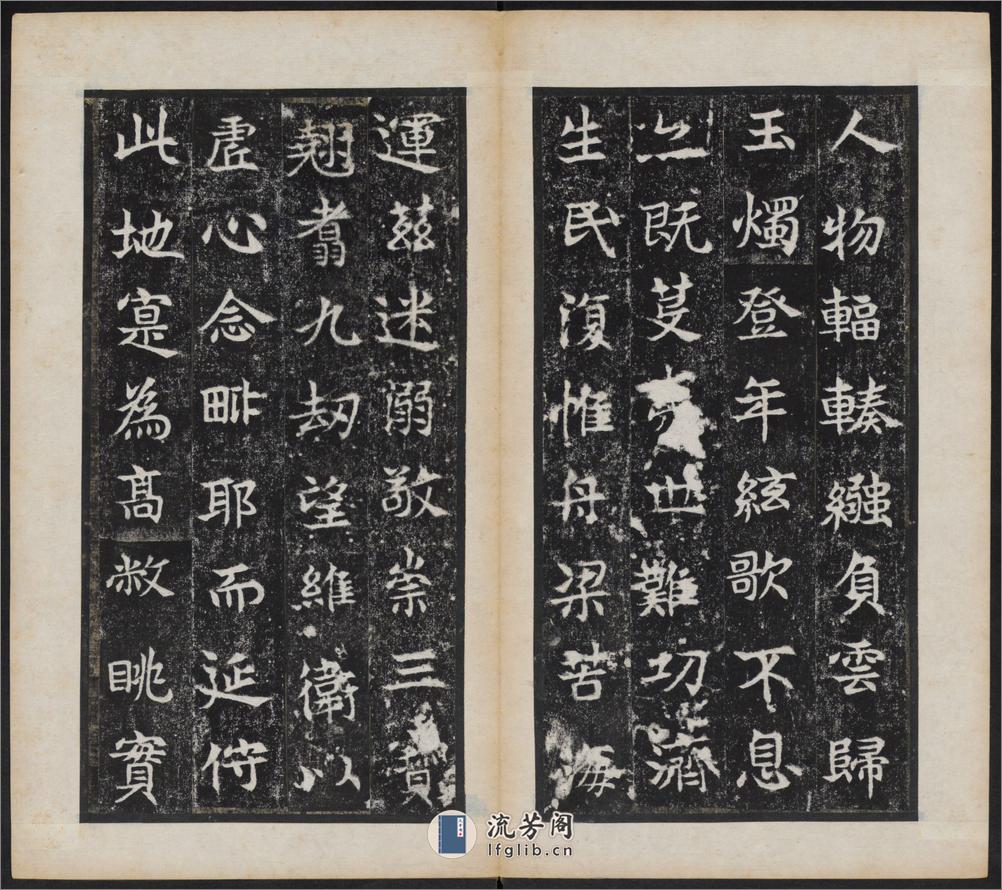 人物輻輳繦負雲歸
玉燭登年絃歌不息
既芟世難功濟
生民復惟舟梁苦海
運茲迷溺敬崇三寶
翹翥九劫望維衛以
虛心念毗耶而延佇
此地寔為高敞眺實
流芳阁
lfglib.cn